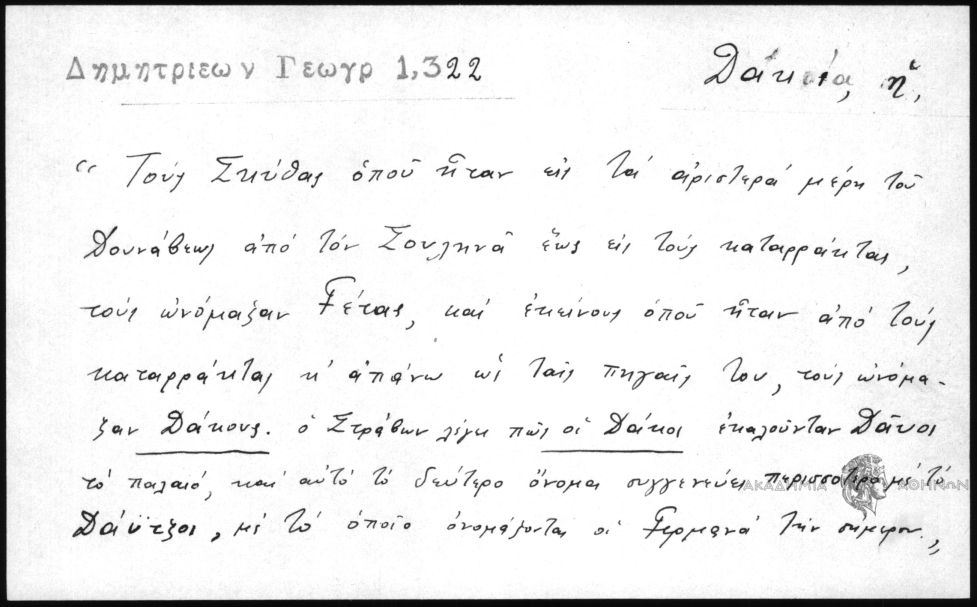 Δημητριεων Γεωγρ 1,322
Δάκια, ἡ,
“ Τούς Σκύθας ὁποῦ ἦταν εἰς τά ἀριστερά μέρη τοῦ
Δουνάβεως ἀπό τόν Σουληνᾶ ἕως εἰς τούς καταρράκτας,
τούς ὠνόμαζαν Γέτας, καί ἐκείνους ὁποῦ ἦταν ἀπό τούς
καταρράκτας κ' ἀπάνω ὡς ταίς πηγαίς του, τούς ὠνόμα-
ζαν Δάκους. ὁ Στράβων λέγει πῶς οἱ Δάκοι ἐκαλοῦνταν Δᾶοι
τό παλαιό, καί αὐτό τό δεύτερο ὄνομα συγγενεύει περισσότερο μέ τό
Δάϋτζοι, μέ τό ὁποῖο ὀνομάζονται οἱ Γερμανοί τήν σήμερον.„
ΑΚΑΔΗΜΙΑ ΑΘΗΝΩΝ